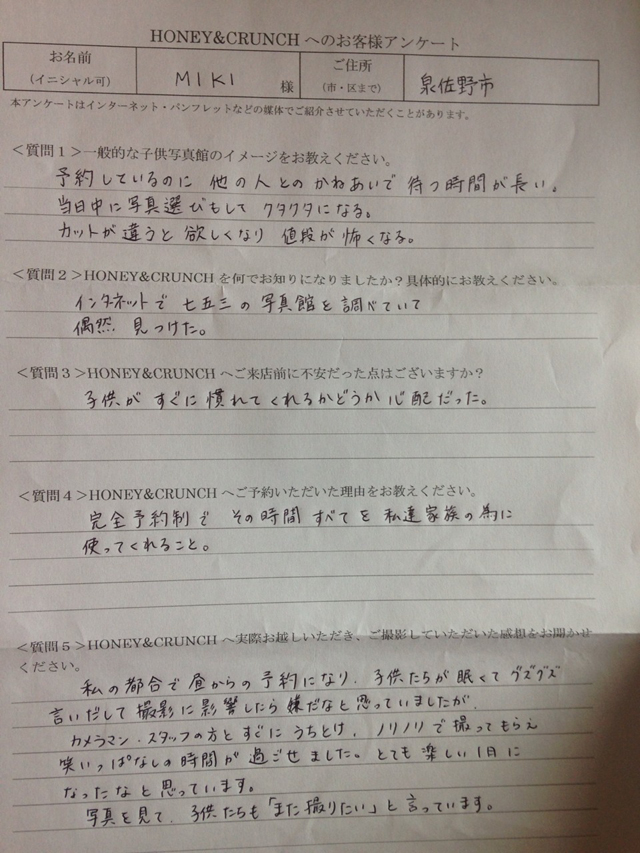 HONEY&CRUNCH へのお客様アンケート
お名前
(イニシャル可)
MIKI 様
ご住所
(市・区まで)
泉佐野市
本アンケートはインターネット・パンフレットなどの媒体でご紹介させていただくことがあります。
＜質問１＞一般的な子供写真館のイメージをお教えください。
予約しているのに 他の人とのかねあいで 待つ時間が長い。
当日中に写真選びもして クタクタになる。
カットが違うと 欲しくなり 値段が怖くなる。
＜質問２＞HONEY&CRUNCH を何でお知りになりましたか？具体的にお教えください。
インタネットで 七五三の写真館を調べていて
偶然 見つけた。
＜質問３＞HONEY&CRUNCH へご来店前に不安だった点はございますか？
子供が すぐに慣れてくれるかどうか心配だった。
＜質問４＞HONEY&CRUNCH へご予約いただいた理由をお教えください。
完全予約制で その時間 すべてを 私達家族の為に
使ってくれること。
＜質問５＞HONEY&CRUNCH へ実際お越しいただき、ご撮影していただいた感想をお聞かせ
ください。
私の都合で昼からの予約になり、子供たちが眠くてグズグズ
言いだして撮影に影響したら嫌だなと思っていましたが、
カメラマン、スタッフの方とすぐにうちとけ、ノリノリで撮ってもらえ
笑いっぱなしの時間が過ごせました。とても楽しい1日に
なったなと思っています。
写真を見て、子供たちも「また撮りたい」と言っています。